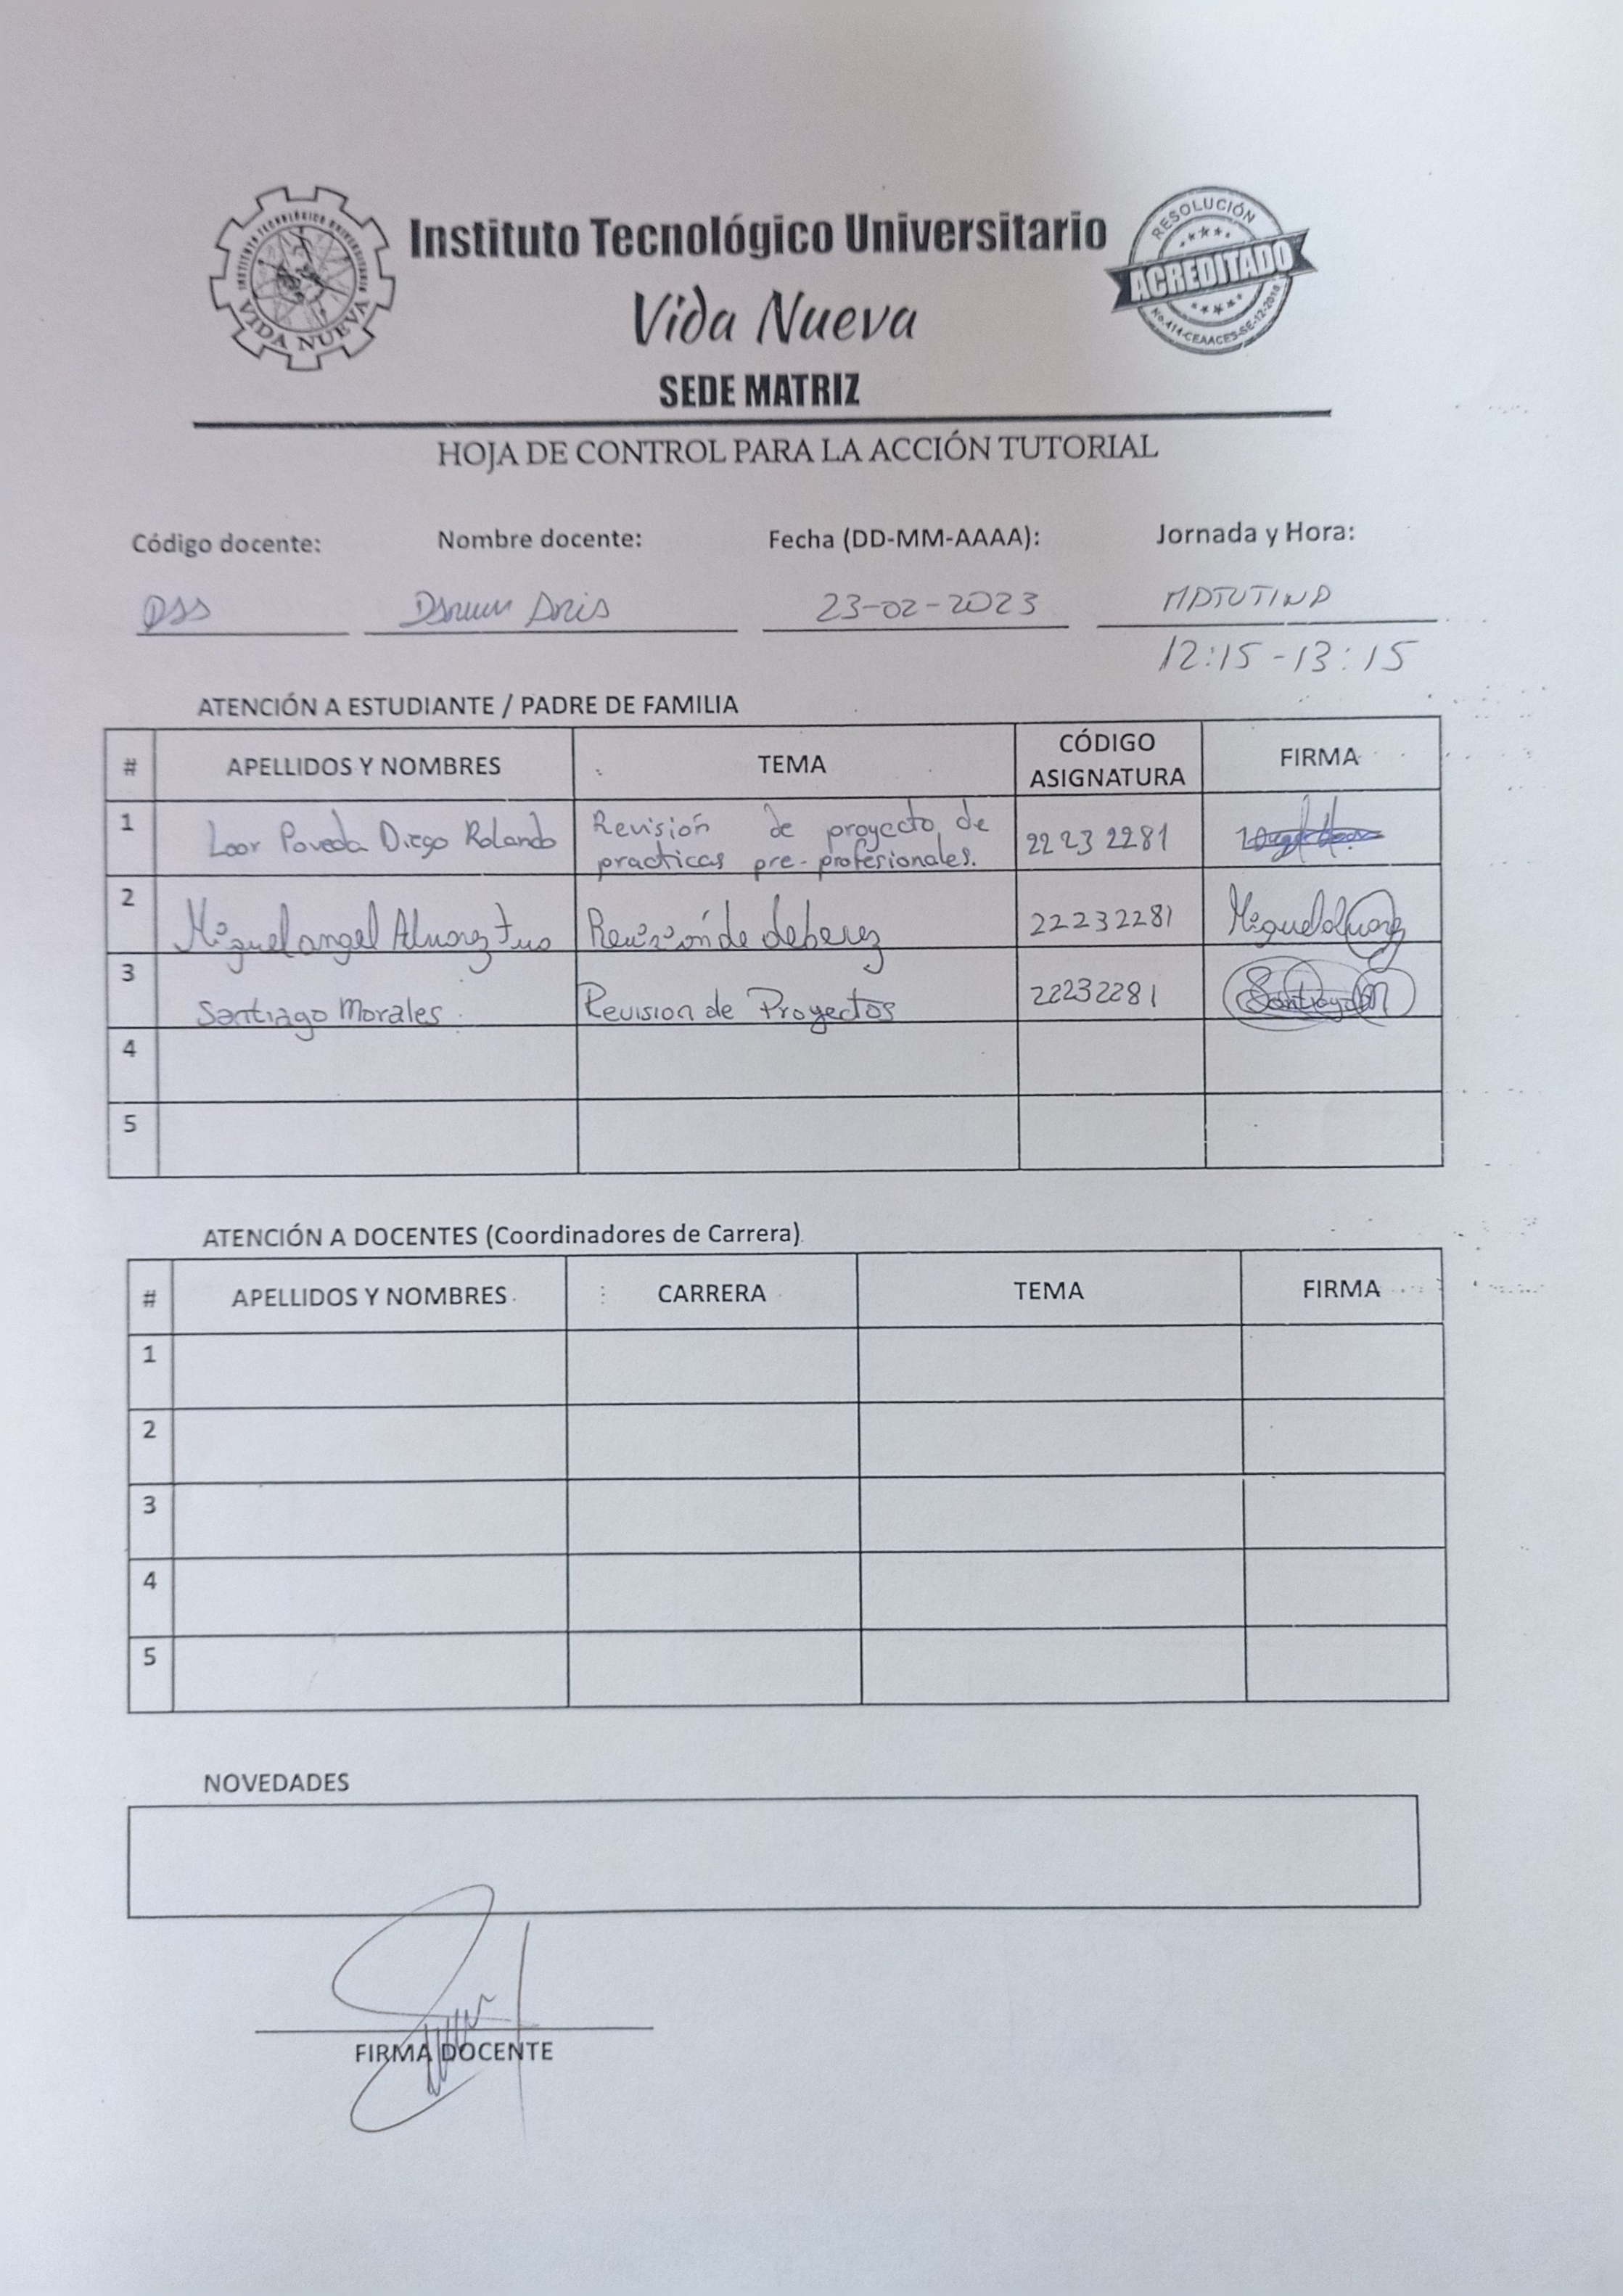 INSTITUTO TECNOLÓGICO UNIVERSITARIO
VIDA NUEVA
Instituto Tecnológico Universitario
Vida Nueva
SEDE MATRIZ
RESOLUCIÓN
ACREDITADO
No.414-CEAACES-SE-12-2018
HOJA DE CONTROL PARA LA ACCIÓN TUTORIAL
Código docente: Nombre docente: Fecha (DD-MM-AAAA): Jornada y Hora:
23-02-2023 MATUTINA
12:15-13:15
ATENCIÓN A ESTUDIANTE / PADRE DE FAMILIA
# APELLIDOS Y NOMBRES TEMA CÓDIGO ASIGNATURA FIRMA
1 Loor Poveda Diego Rolando Revisión de proyecto de
practicas pre-profesionales. 22232281
2 Miguel angel Alvarez Revisión de deberez 22232281
3 Santiago Morales Revision de Proyectos 22232281
4
5
ATENCIÓN A DOCENTES (Coordinadores de Carrera)
# APELLIDOS Y NOMBRES CARRERA TEMA FIRMA
1
2
3
4
5
NOVEDADES
FIRMA DOCENTE